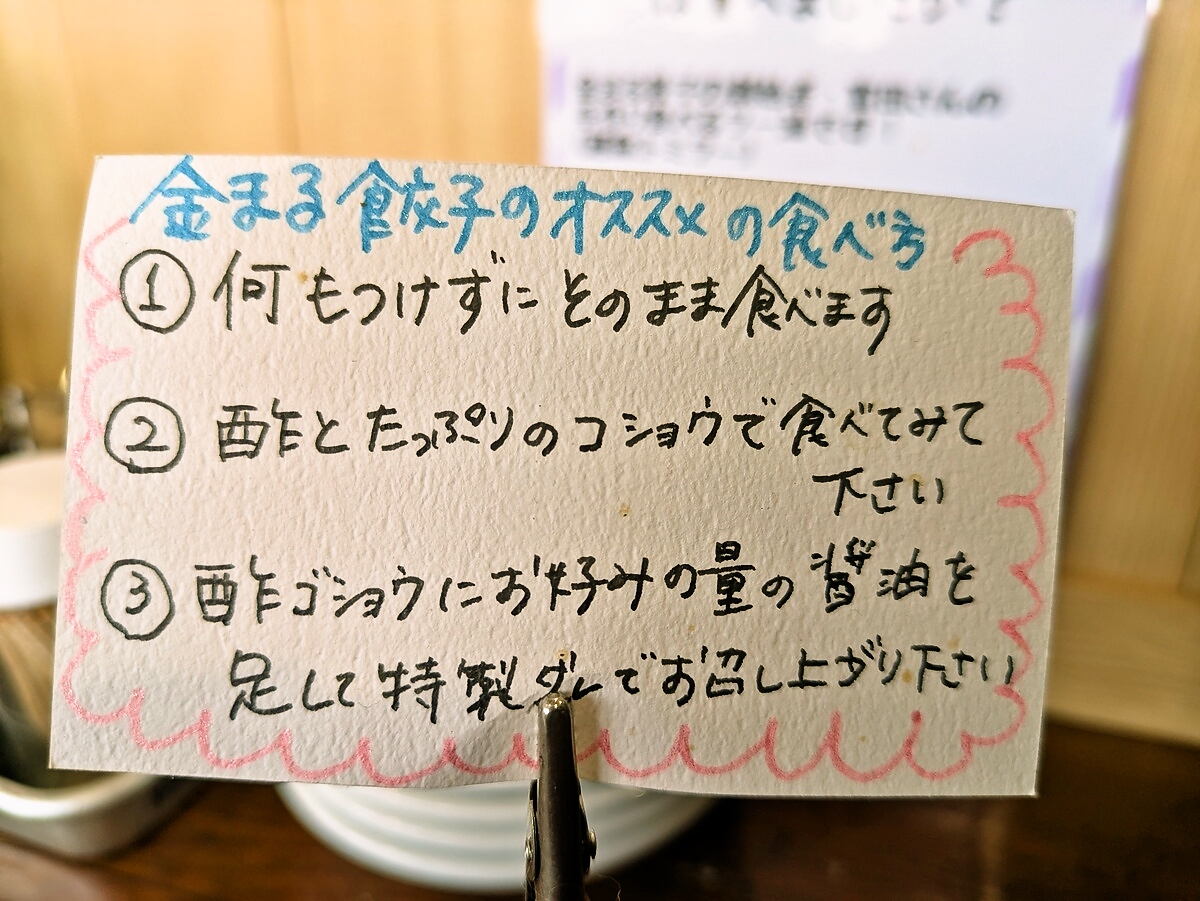 金まる餃子のオススメの食べ方
① 何もつけずにそのまま食べます
② 酢とたっぷりのコショウで食べてみて
下さい
③ 酢ゴショウにお好みの量の醤油を
足して特製ダレでお召し上がり下さい